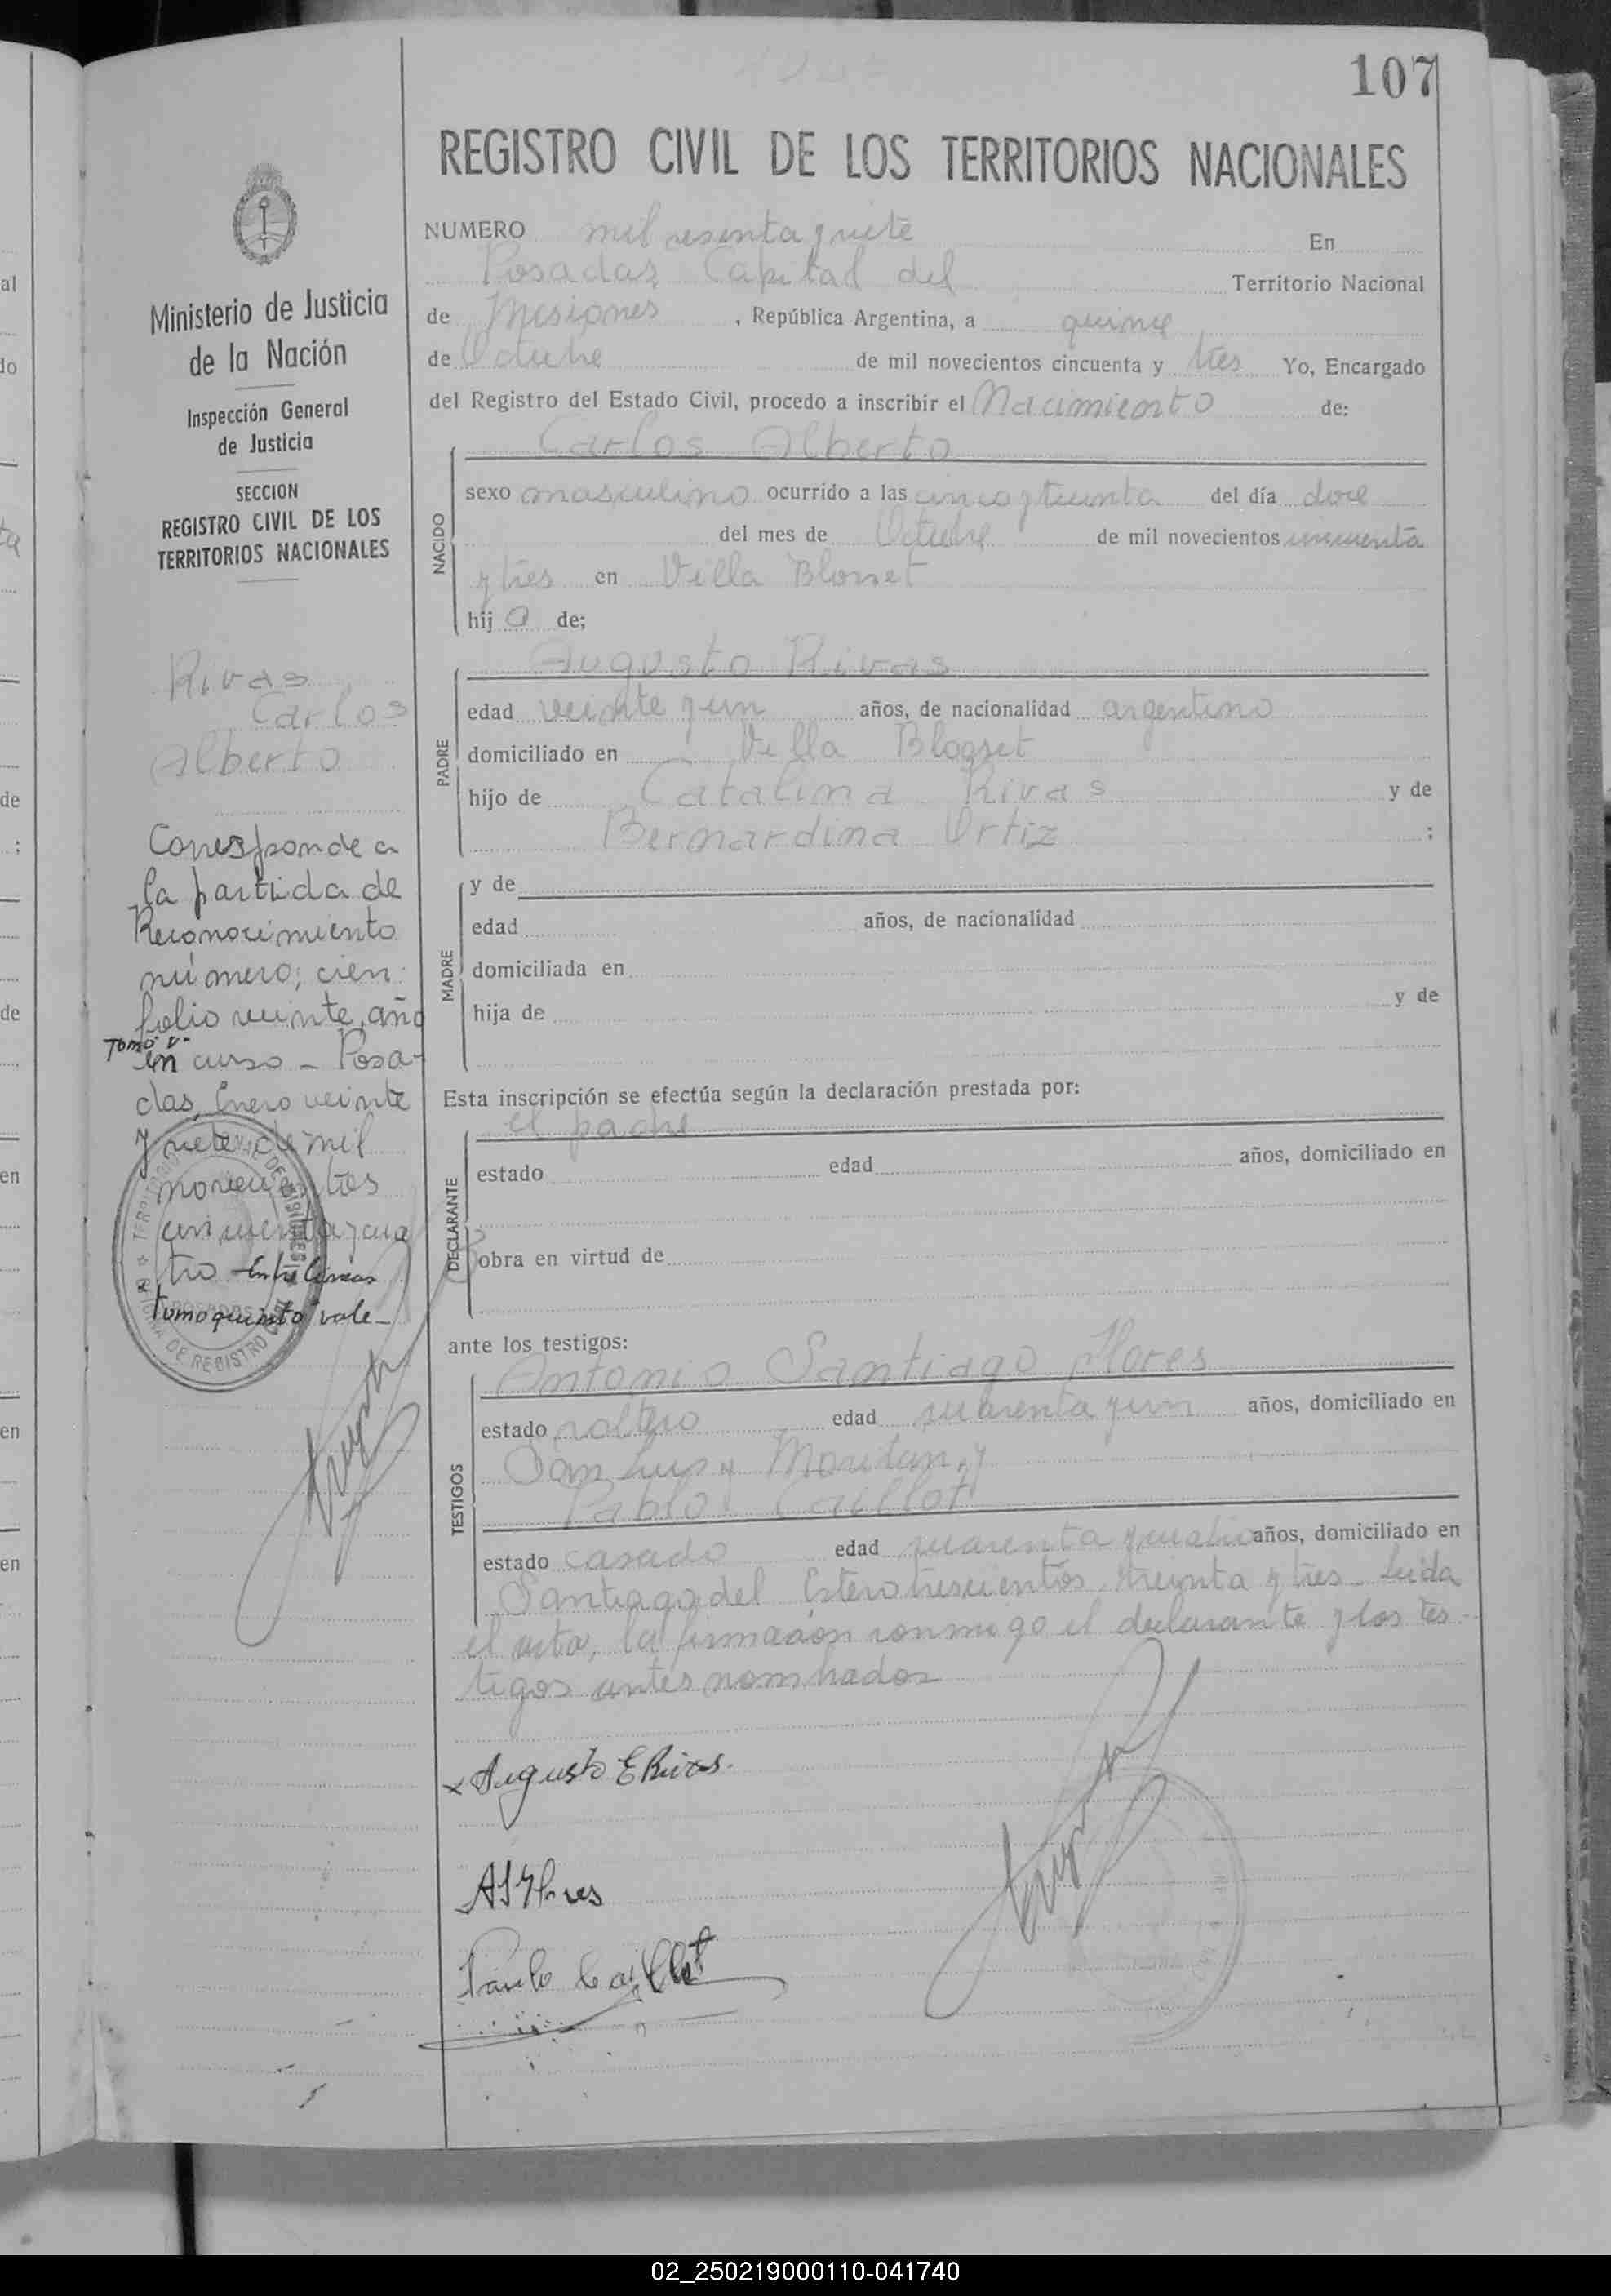 107
REGISTRO CIVIL DE LOS TERRITORIOS NACIONALES
NUMERO mil sesenta y siete En
Posadas Capital del Territorio Nacional
de Misiones , República Argentina, a quince
de Octubre de mil novecientos cincuenta y tres Yo, Encargado
del Registro del Estado Civil, procedo a inscribir el Nacimiento de:
NACIDO
Carlos Alberto
sexo masculino ocurrido a las cinco y treinta del día doce
del mes de Octubre de mil novecientos cincuenta
y tres en Villa Blosset
hij o de;
PADRE
Augusto Rivas
edad veinte y un años, de nacionalidad argentino
domiciliado en Villa Blosset
hijo de Catalina Rivas y de
Bernardina Ortiz ;
MADRE
y de
edad años, de nacionalidad
domiciliada en
hija de y de
Esta inscripción se efectúa según la declaración prestada por:
DECLARANTE
el padre
estado edad años, domiciliado en
obra en virtud de
ante los testigos:
TESTIGOS
Antonio Santiago Flores
estado soltero edad cuarenta y un años, domiciliado en
San Luis y
Pablo Caillot
estado casado edad cuarenta y cuatro años, domiciliado en
Santiago del Estero trescientos treinta y tres - Leida
el acta, la firmaron conmigo el declarante y los tes-
tigos antes nombrados
x Augusto E Rivas.
AS Flores
Paulo Caillot
Ministerio de Justicia
de la Nación
Inspección General
de Justicia
SECCION
REGISTRO CIVIL DE LOS
TERRITORIOS NACIONALES
Rivas
Carlos
Alberto
Corresponde a
la partida de
Reconocimiento
número; cien
folio veinte, año
Tomo V-
en curso - Posa-
das, Enero veinte
y siete de mil
novecientos
cincuenta y cua
tro - Entre lineas
Tomo quinto vale -
02_250219000110-041740